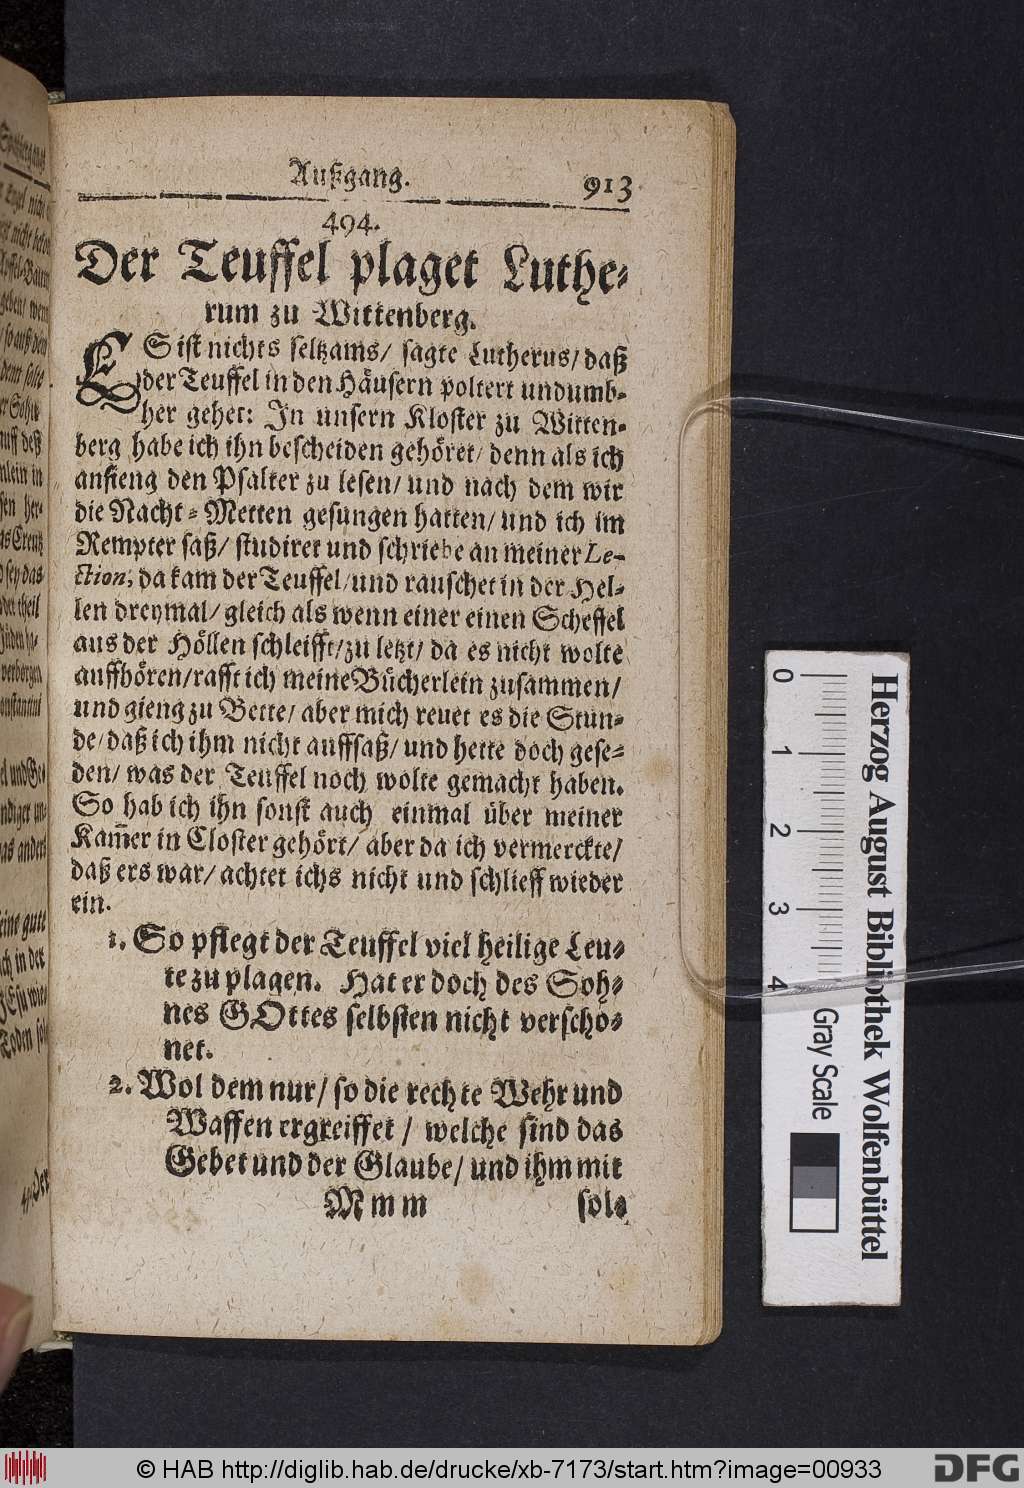 Außgang. 913
494.
Der Teuffel plaget Luthe-
rum zu Wittenberg.
ES ist nichts seltzams/ sagte Lutherus/ daß
der Teuffel in den Häusern poltert und umb-
her gehet: In unsern Kloster zu Witten-
berg habe ich ihn bescheiden gehöret/ denn als ich
anfieng den Psalter zu lesen/ und nach dem wir
die Nacht-Metten gesungen hatten/ und ich im
Rempter saß/ studiret und schriebe an meiner Le-
ction, da kam der Teuffel/ und rauschet in der Hel-
len dreymal/ gleich als wenn einer einen Scheffel
aus der Höllen schleifft/ zu letzt/ da es nicht wolte
auffhören/ rafft ich meine Bücherlein zusammen/
und gieng zu Bette/ aber mich reuet es die Stun-
de/ daß ich ihm nicht auffsaß/ und hette doch gese-
den/ was der Teuffel noch wolte gemacht haben.
So hab ich ihn sonst auch einmal über meiner
Kam̃er in Closter gehört/ aber da ich vermerckte/
daß ers war/ achtet ichs nicht und schlieff wieder
ein.
1. So pflegt der Teuffel viel heilige Leu-
te zu plagen. Hat er doch des Soh-
nes GOttes selbsten nicht verscho-
net.
2. Wol dem nur/ so die rechte Wehr und
Waffen ergreiffet/ welche sind das
Gebet und der Glaube/ und ihm mit
Mmm sol-
0 1 2 3 4
Gray Scale
Herzog August Bibliothek Wolfenbüttel
© HAB http://diglib.hab.de/drucke/xb-7173/start.htm?image=00933
DFG